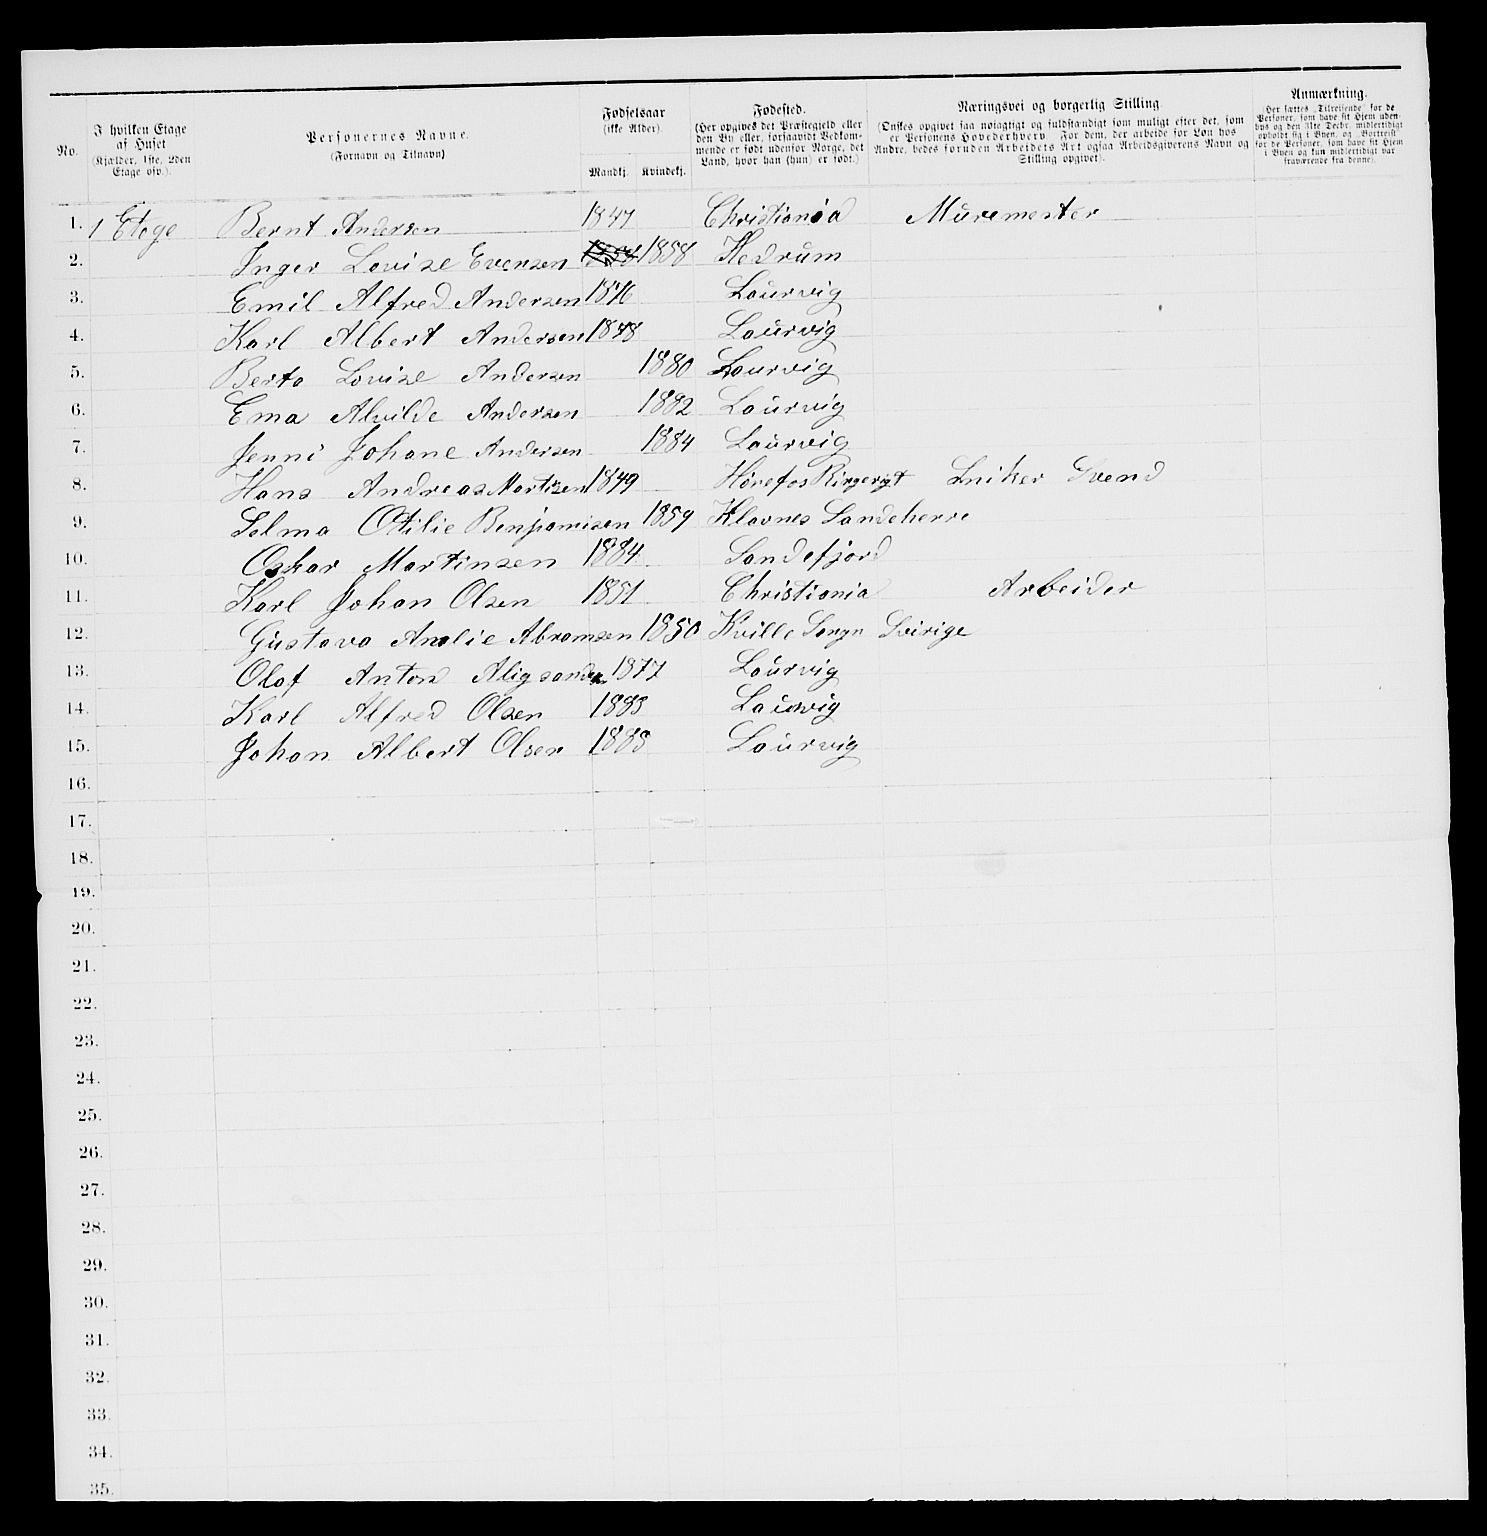 No.
I hvilken Etage
af Huset
(Kjælder, 1ste, 2den
Etage osv.).
Personernes Navne.
(Fornavn og Tilnavn)
Fødselsaar
(ikke Alder).
Mandkj. Kvindekj.
Fødested.
(Her opgives det Præstegjeld eller
den By eller, forsaavidt Vedkom-
mende er født udenfor Norge, det
Land, hvor han (hun) er født.)
Næringsvei og borgerlig Stilling.
(Ønskes opgivet saa nøiagtigt og fuldstændigt som muligt efter det, som
er Personens Hovederhverv. For dem, der arbeide for Løn hos
Andre, bedes foruden Arbeidets Art ogsaa Arbeidsgiverens Navn og
Stilling opgivet).
Anmærkning.
(Her sættes „Tilreisende“ for de
Personer, som have sit Hjem uden-
bys og den 31te Decbr. midlertidigt
opholdt sig i Byen, og „Bortreist“
for de Personer, som have sit Hjem
i Byen og kun midlertidigt var
fraværende fra denne).
1. 1 Etage Bernt Andersen 1847 Christiania Muremester
2. Inger Lovise Evensen 1858 Hedrum
3. Emil Alfred Andersen 1876 Laurvig
4. Karl Albert Andersen 1878 Laurvig
5. Berta Lovise Andersen 1880 Laurvig
6. Ema Alvilde Andersen 1882 Laurvig
7. Jenni Johane Andersen 1884 Laurvig
8. Hans Andreas Martisen 1849 Hønefos Ringerigt Sniker Svend
9. Selma Otilie Benjamisen 1859 Klavnes Sandeherre
10. Oskar Martinsen 1884 Sandefjord
11. Karl Johan Olsen 1851 Christiania Arbeider
12. Gustava Amalie Abramsen 1850 Kville Sogn Sverige
13. Olaf Anton 1877 Laurvig
14. Karl Alfred Olsen 1883 Laurvig
15. Johan Albert Olsen 1885 Laurvig
16.
17.
18.
19.
20.
21.
22.
23.
24.
25.
26.
27.
28.
29.
30.
31.
32.
33.
34.
35.